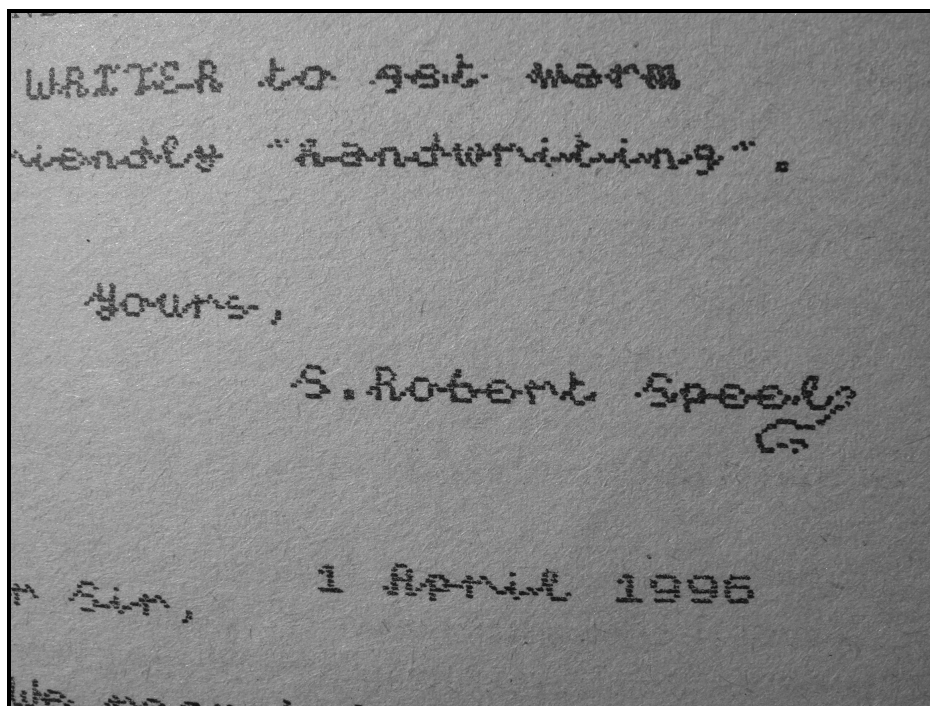 WRITER to get warm
riendly "handwriting".
yours,
S.Robert Speel
r Sir, 1 April 1996
We